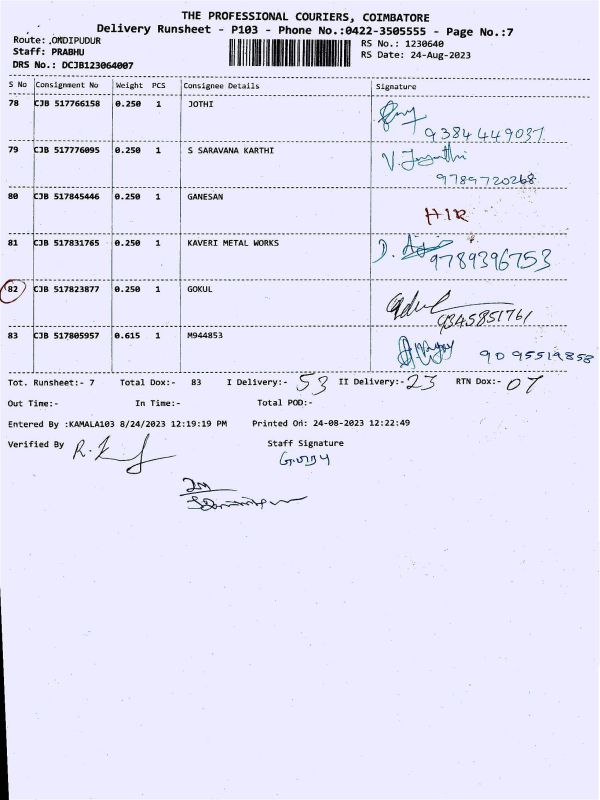 THE PROFESSIONAL COURIERS, COIMBATORE
Delivery Runsheet - P103 - Phone No.:0422-3505555 - Page No.:7
Route: ,ONDIPUDUR RS No.: 1230640
Staff: PRABHU RS Date: 24-Aug-2023
DRS No.: DCJB123064007
S No Consignment No Weight PCS Consignee Details Signature
78 CJB 517766158 0.250 1 JOTHI
9384449037
79 CJB 517776095 0.250 1 S SARAVANA KARTHI V. Jayanthi
9789720268
80 CJB 517845446 0.250 1 GANESAN
H1R
81 CJB 517831765 0.250 1 KAVERI METAL WORKS D.
9789396753
82 CJB 517823877 0.250 1 GOKUL
9345851761
83 CJB 517805957 0.615 1 M944853
9095519858
Tot. Runsheet:- 7 Total Dox:- 83 I Delivery:- 53 II Delivery:- 23 RTN Dox:- 07
Out Time:- In Time:- Total POD:-
Entered By :KAMALA103 8/24/2023 12:19:19 PM Printed On: 24-08-2023 12:22:49
Verified By R.K Staff Signature